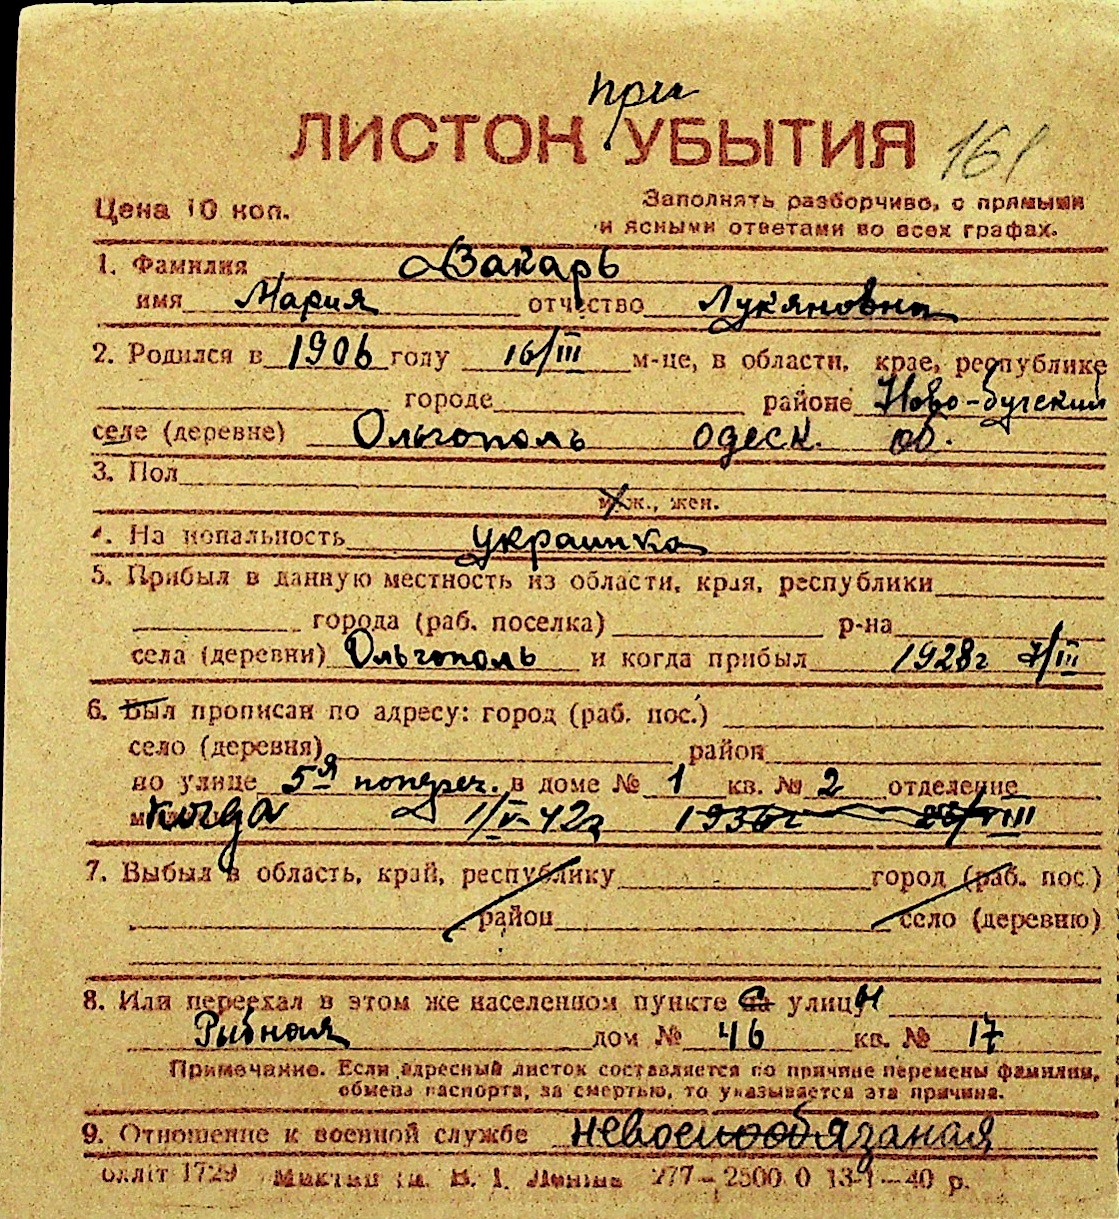 при
ЛИСТОК УБЫТИЯ 161
Цена 10 коп.
Заполнять разборчиво, с прямыми
и ясными ответами во всех графах.
1. Фамилия Вакарь
имя Мария отчество Лукяновна
2. Родился в 1906 году 16/III м-це, в области, крае, республике
городе районе Ново-бугский
селе (деревне) Ольгополь одеск. об.
3. Пол
муж., жен.
4. На иональность украинка
5. Прибыл в данную местность из области, края, республики
города (раб. поселка) р-на
села (деревни) Ольгополь и когда прибыл 1928г 7/III
6. Был прописан по адресу: город (раб. пос.)
село (деревня) район
по улице 5я попереч. в доме № 1 кв. № 2 отделение
когда 1/V-42г 1936г
7. Выбыл в область, край, республику город (раб. пос.)
район село (деревню)
8. Или переехал в этом же населенном пункте с улицы
Рыбная дом № 46 кв. № 17
Примечание. Если адресный листок составляется по причине перемены фамилии,
обмена паспорта, за смертью, то указывается эта причина.
9. Отношение к военной службе невоенообязаная
1729 В. І. Леніна 277–2500 0 13-1–40 р.